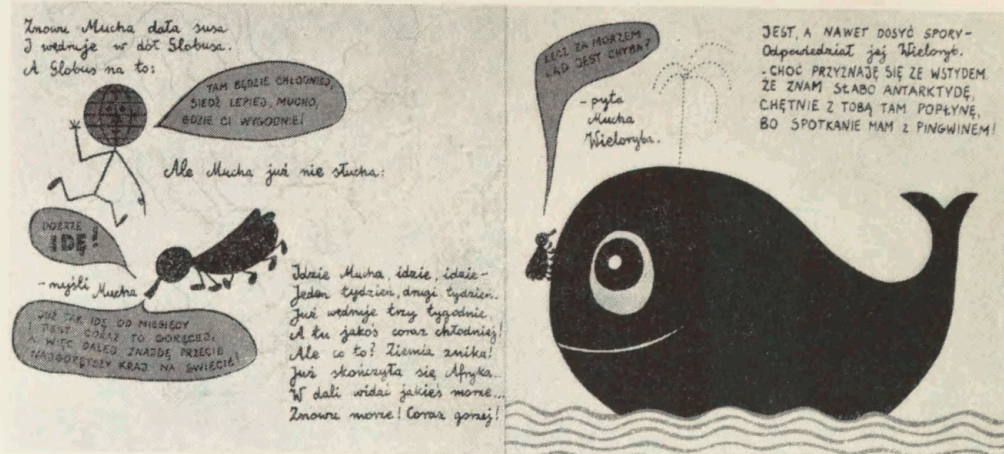 Znowu Mucha dała susa
I wędruje w dół Globusa.
A Globus na to:
TAM BĘDZIE CHŁODNIEJ,
SIEDŹ LEPIEJ, MUCHO,
GDZIE CI WYGODNIE!
Ale Mucha już nie słucha:
DOBRZE
IDĘ!
- myśli Mucha
JUŻ TAK IDĘ OD MIESIĘCY
I JEST CORAZ TO GORĘCEJ,
A WIĘC DALEJ ZNAJDĘ PRZECIE
NAJGORĘTSZY KRAJ NA ŚWIECIE!
Idzie Mucha, idzie, idzie -
Jeden tydzień, drugi tydzień..
Już wędruje trzy tygodnie,
A tu jakoś coraz chłodniej!
Ale co to? Ziemia znika!
Już skończyła się Afryka..
W dali widać jakieś morze...
Znowu morze! Coraz gorzej!
LECZ ZA MORZEM
LĄD JEST CHYBA?
- pyta
Mucha
Wieloryba.
JEST, A NAWET DOSYĆ SPORY -
Odpowiedział jej Wieloryb.
- CHOĆ PRZYZNAJĘ SIĘ ZE WSTYDEM
ŻE ZNAM SŁABO ANTARKTYDĘ,
CHĘTNIE Z TOBĄ TAM POPŁYNĘ,
BO SPOTKANIE MAM Z PINGWINEM!